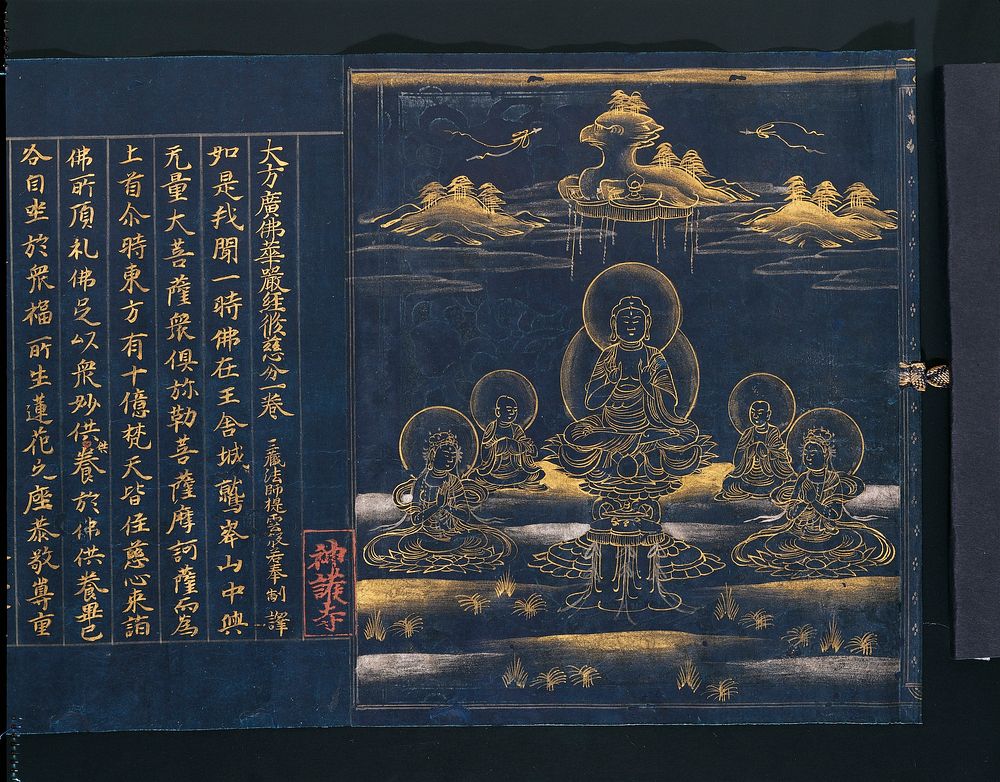 大方廣佛華嚴經修慈分一卷 三藏法師提雲般若奉 制譯
如是我聞一時佛在王舍城鷲峯山中與
无量大菩薩衆俱弥勒菩薩摩訶薩而為
上首尒時東方有十億梵天皆住慈心来詣
佛所頂礼佛足以衆妙供養於佛供養畢已
各自坐於衆福所生蓮花之座恭敬尊重
供
神護寺